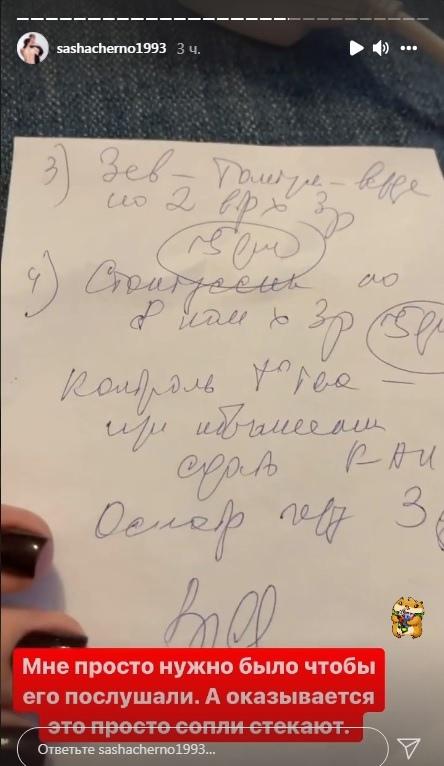 sashacherno1993 3 ч.
3) Зев - Тантум - верде
по 2 вр х 3р
5 дн
4) Стоптуссин по
8 кап х 3р 5 дн
Контроль t° тела -
при повышении
сдать
Осмотр через 3
Мне просто нужно было чтобы
его послушали. А оказывается
это просто сопли стекают.
Ответьте sashacherno1993...